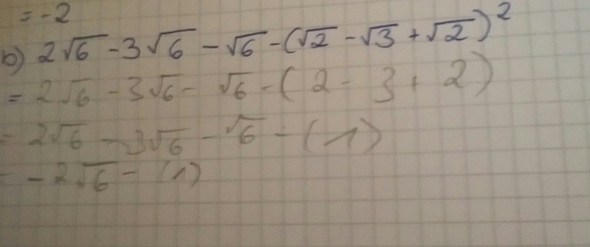 = -2
b) 2√6 - 3√6 - √6 - (√2 - √3 + √2)²
= 2√6 - 3√6 - √6 - (2 - 3 + 2)
= 2√6 - 3√6 - √6 - (1)
= -2√6 - (1)